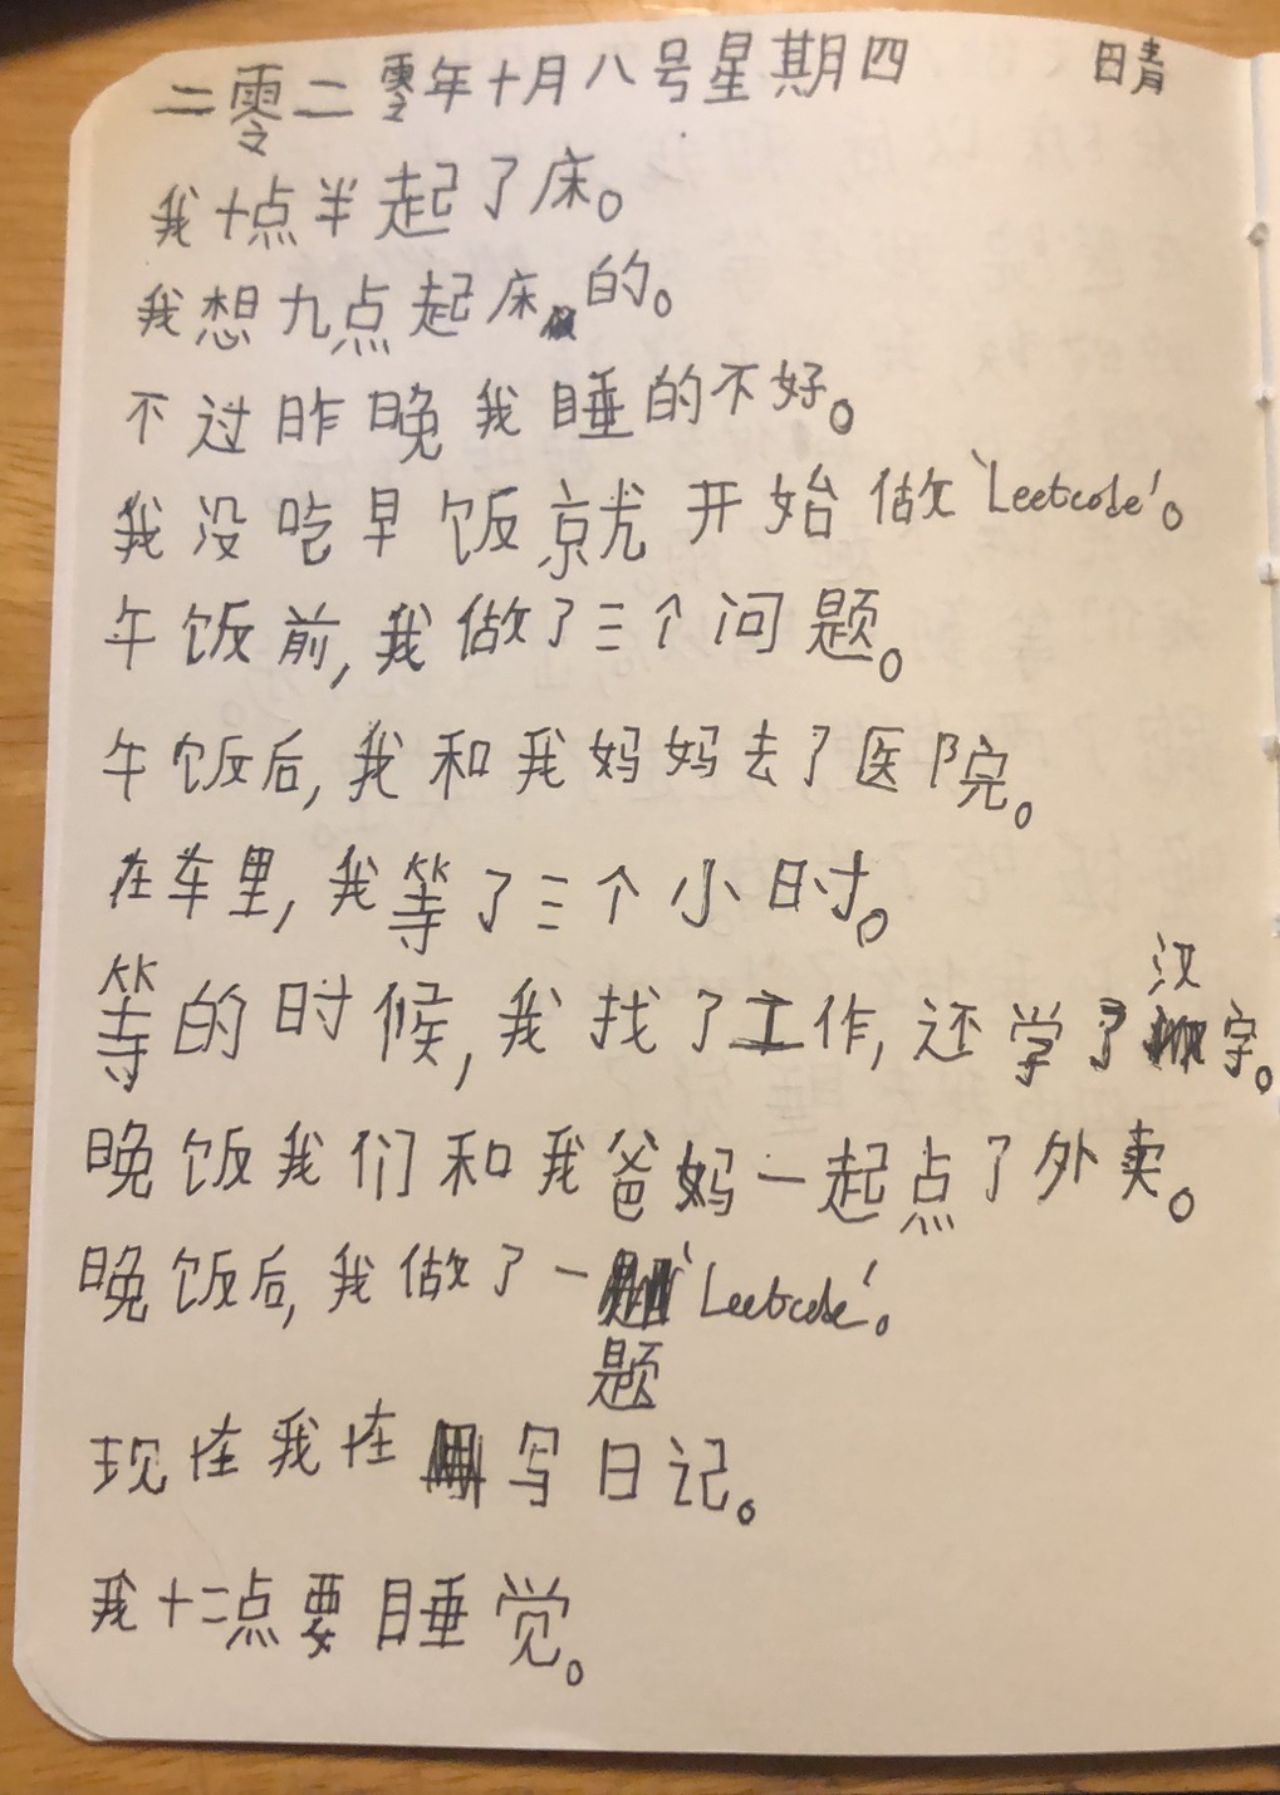 二零二零年十月八号星期四 晴
我十点半起了床。
我想九点起床的。
不过昨晚我睡的不好。
我没吃早饭就开始做‘Leetcode’。
午饭前,我做了三个问题。
午饭后,我和我妈妈去了医院。
在车里,我等了三个小时。
等的时候,我找了工作,还学了汉字。
晚饭我们和我爸妈一起点了外卖。
晚饭后,我做了一题‘Leetcode’。
现在我在写日记。
我十二点要睡觉。